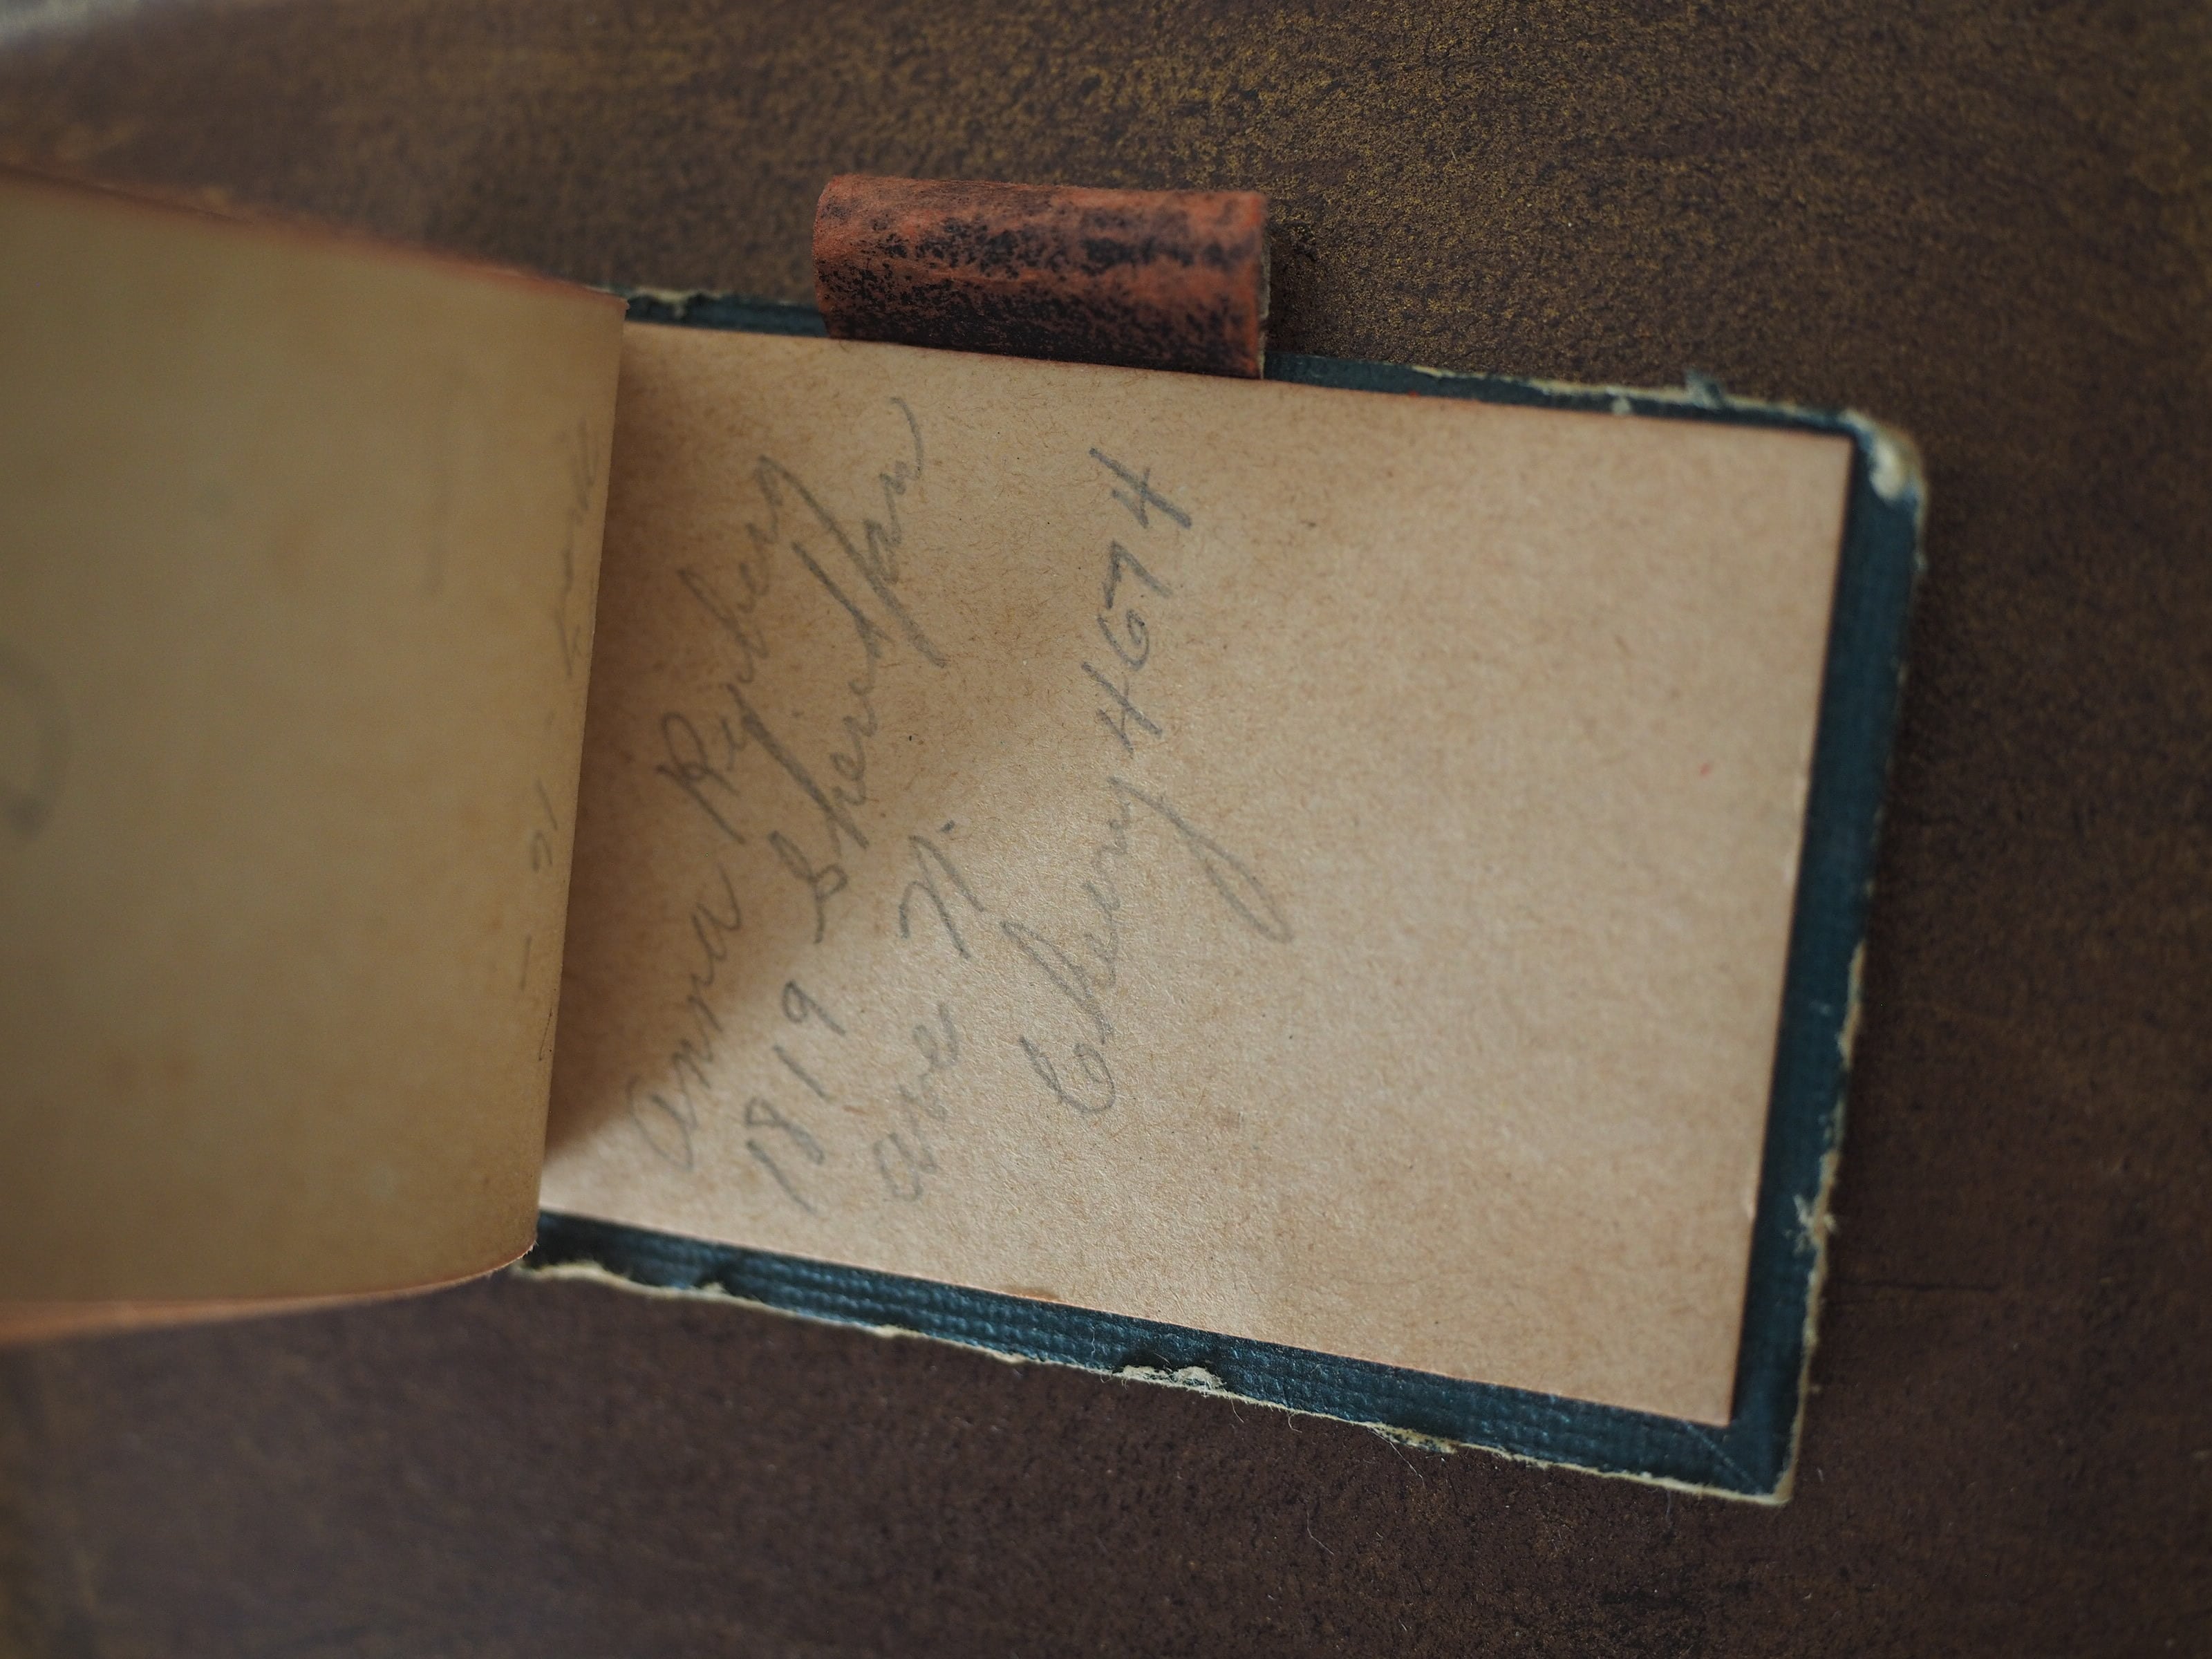 Anna Rypberg
1819 Sheridan
ave N.
Cherry 4674